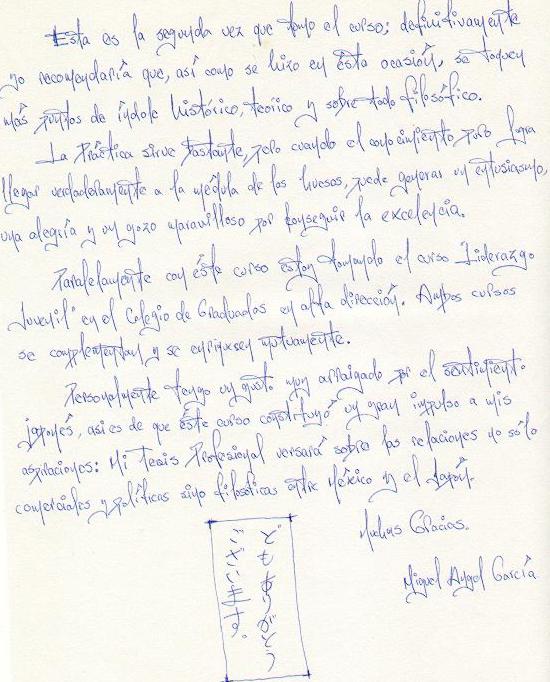 Esta es la segunda vez que tomo el curso; definitivamente
yo recomendaría que, así como se hizo en ésta ocasión, se toquen
más puntos de índole histórico, teórico y sobre todo filosófico.
La Práctica sirve bastante, pero cuando el conocimiento puro logra
llegar verdaderamente a la médula de los huesos, puede generar un entusiasmo,
una alegría y un gozo maravilloso por conseguir la excelencia.
Paralelamente con éste curso estoy tomando el curso "Liderazgo
Juvenil" en el Colegio de Graduados en alta dirección. Ambos cursos
se complementan y se enriquesen mutuamente.
Personalmente tengo un gusto muy arraigado por el sentimiento
japonés, asi es de que éste curso constituyó un gran impulso a mis
aspiraciones: Mi Tesis Profesional versará sobre las relaciones no sólo
comerciales y políticas sino filosóficas entre México y el Japón.
Muchas Gracias.
Miguel Angel García
どもありがとう
ございます。